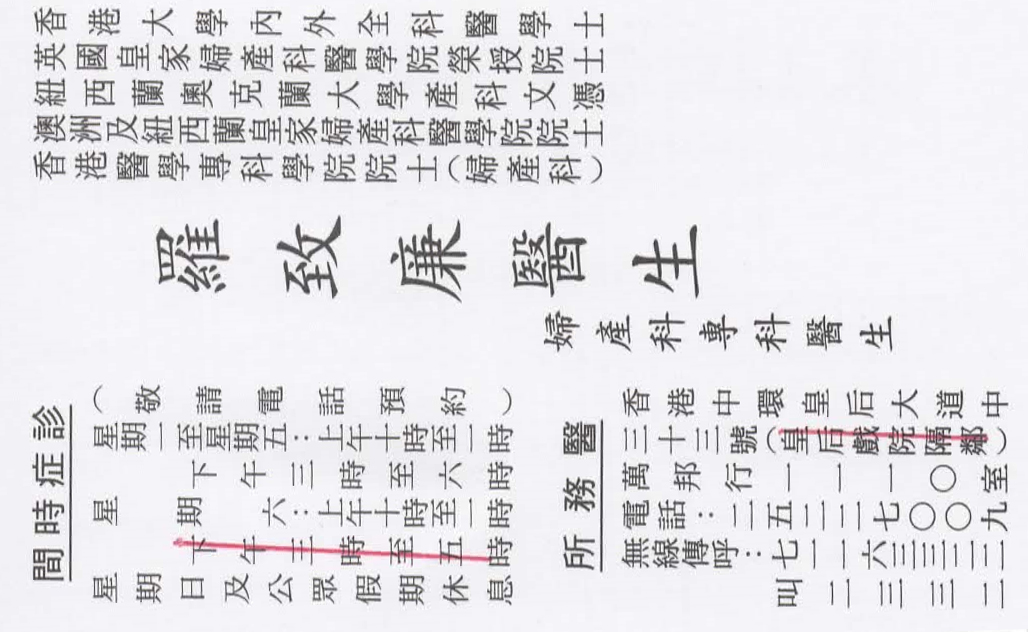 香港大學內外全科醫學士
英國皇家婦產科醫學院榮授院士
紐西蘭奧克蘭大學產科文憑
澳洲及紐西蘭皇家婦產科醫學院院士
香港醫學專科學院院士(婦產科)
羅致廉醫生
婦產科專科醫生
醫務所
香港中環皇后大道中
三十三號(皇后戲院隔鄰)
萬邦行一一一〇室
電話:二五二二七〇〇九
無線傳呼:
叫二二三三二
診症時間
(敬請電話預約)
星期一至星期五:上午十時至一時
下午三時至六時
星期六:上午十時至一時
下午三時至五時
星期日及公眾假期休息